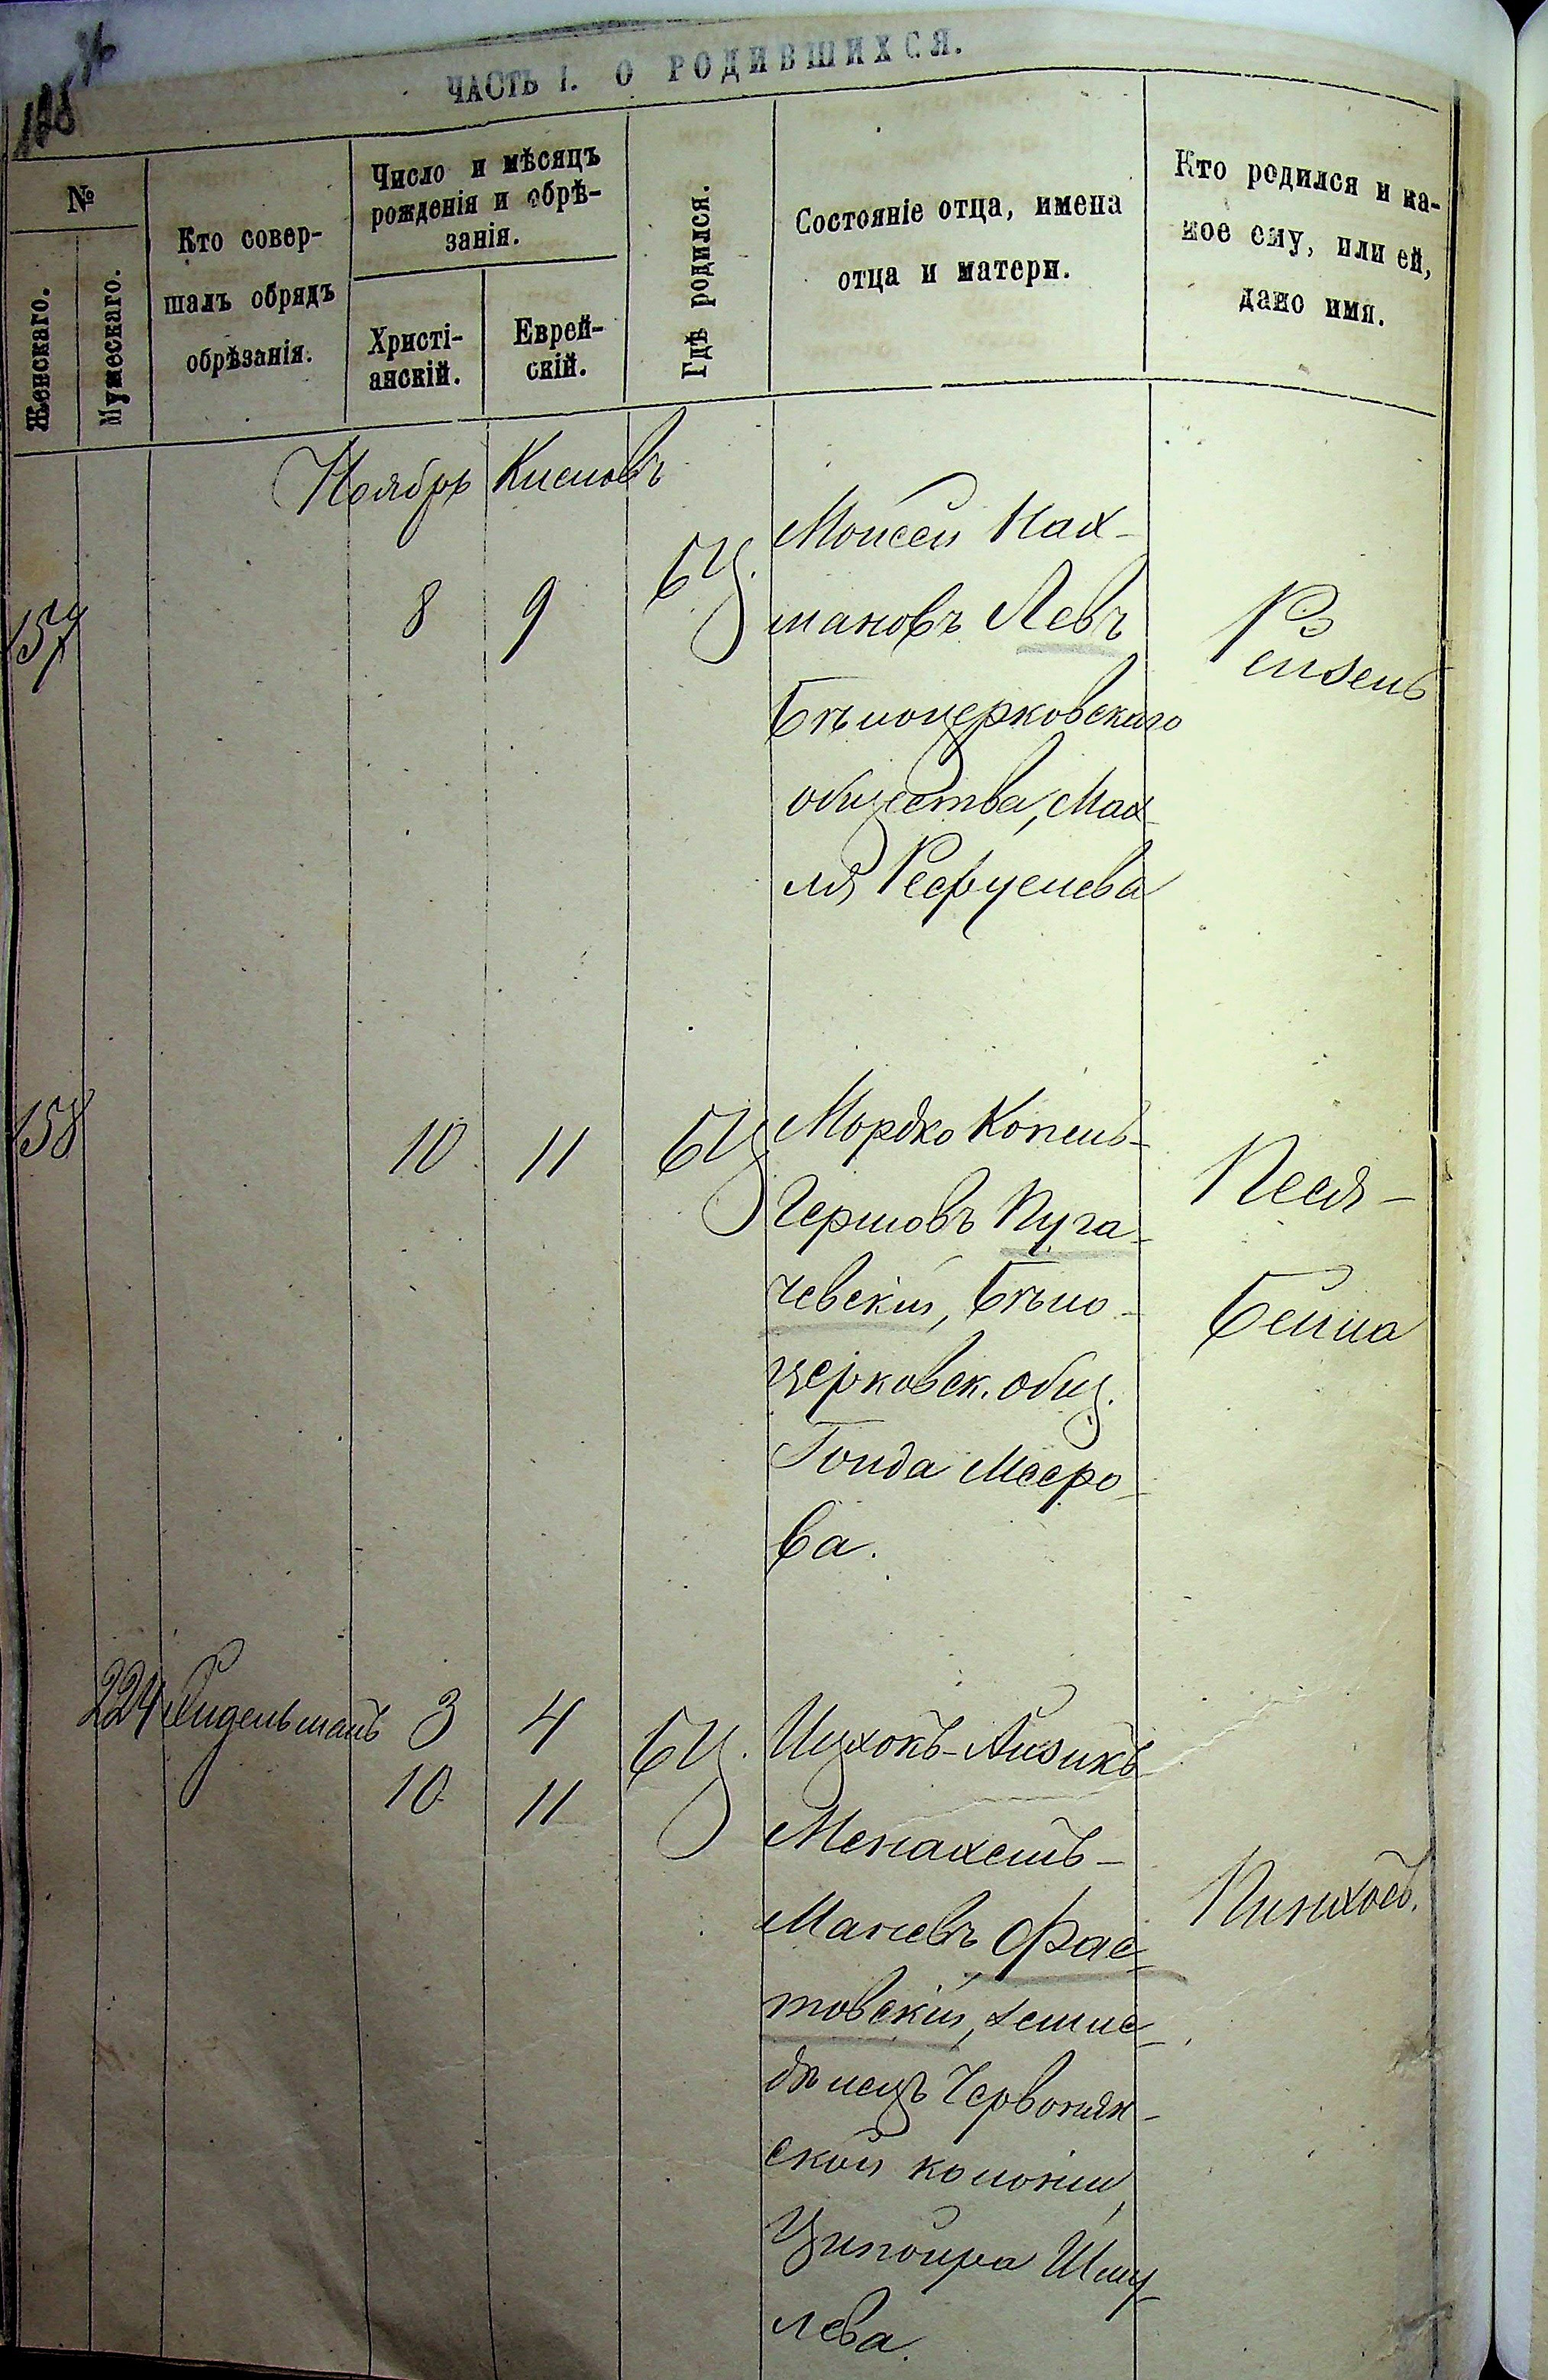 ЧАСТЬ I. О РОДИВШИХСЯ.
№
Женскаго.
Мужескаго.
Кто совер-
шалъ обрядъ
обрѣзанія.
Число и мѣсяцъ
рожденія и обрѣ-
занія.
Христі-
анскій.
Еврей-
скій.
Гдѣ родился.
Состояніе отца, имена
отца и матери.
Кто родился и ка-
кое ему, или ей,
дано имя.
Ноябрь Кислевъ
157 8 9 БЦ.
Моисей Нах-
мановъ Левъ
Бѣлоцерковскаго
общества, Мах-
ля
Рейзель
158 10 11 БЦ
Мордко Копель-
Гершовъ Пуга-
чевскій, Бѣло-
церковск. общ.
Голда Мееро-
ва.
Песя-
Бейла
224 3 4 БЦ.
10 11
Ицхокъ-Айзикъ
Менахемъ-
Маневъ Фас-
товскій, земле-
дѣлецъ Червонян-
ской колоніи,
Ципойра Шму-
лева.
Пинхосъ.